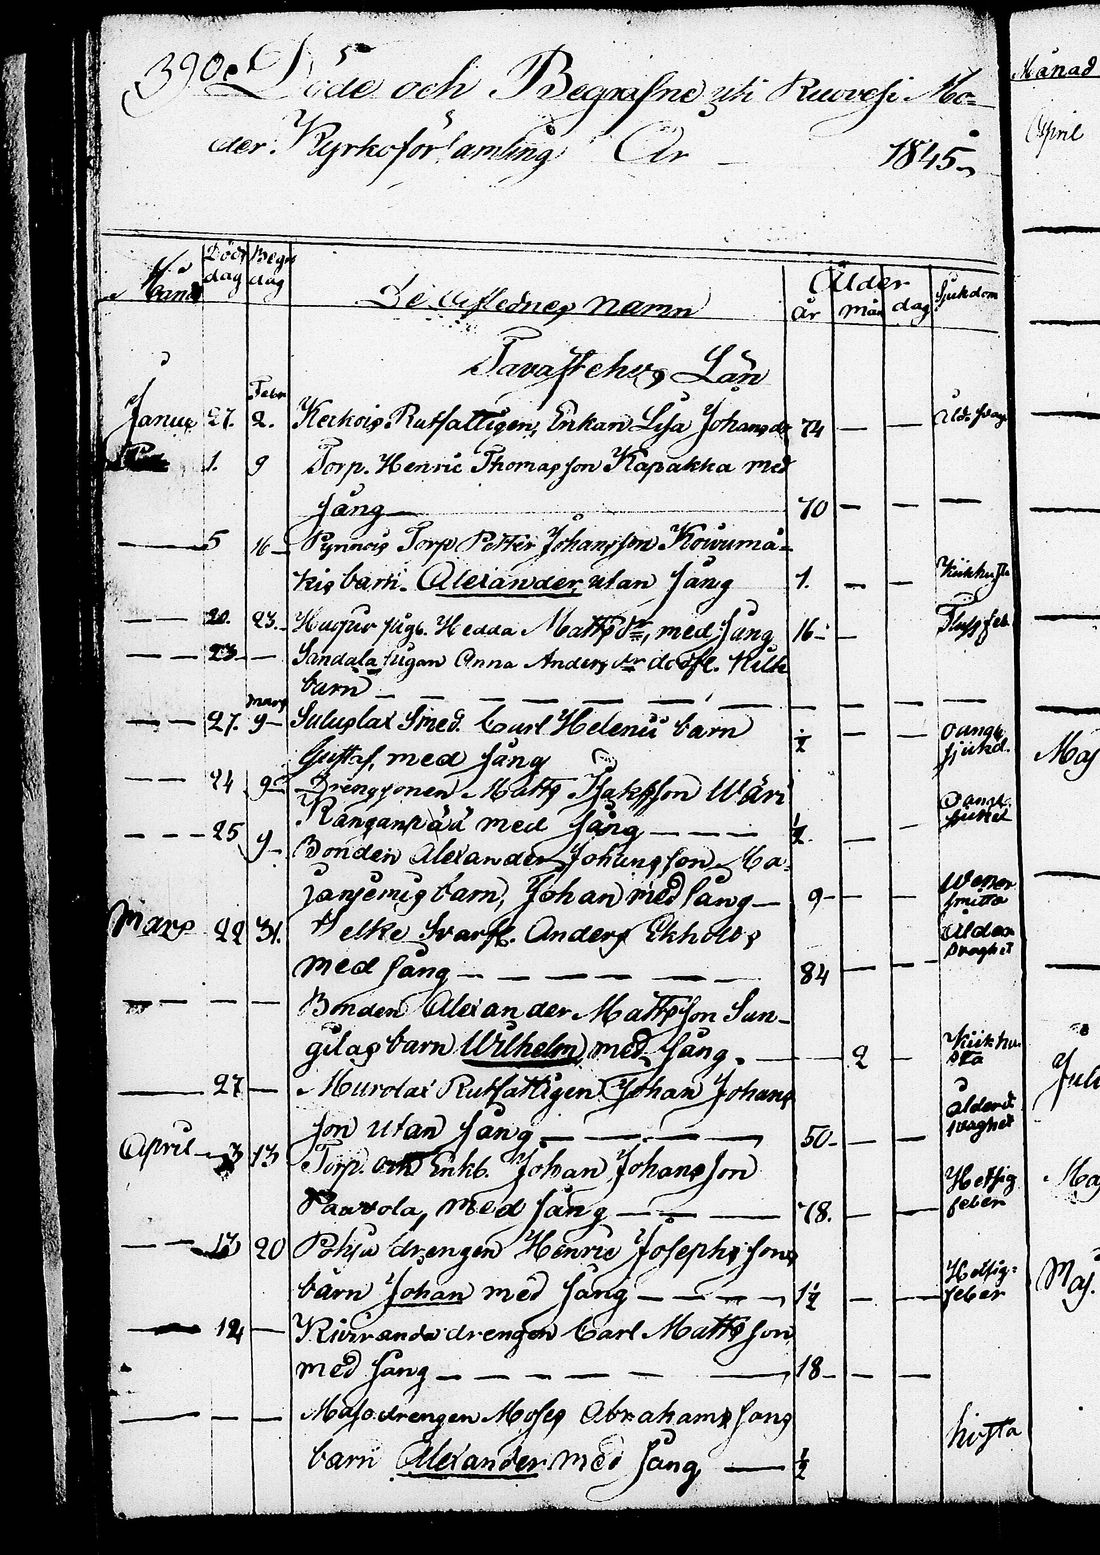 390.
Döde och Begrafne uti Ruovesi Mo-
der Kyrkoförsamling År 1845
Månad Död dag Begr dag De Aflednes namn Ålder år mån dag Sjukdom
Tavastehus Län
Januar 27. Febr 2. Keckois Rutfattigen, Enkan Lisa Johansdr 74 — —
1. 9 Torp. Henric Thomasson Kapakka med
sång — 70 — — —
— 5 16 Pynnois Torp Petter Johansson Koivumä-
kis barn. Alexander, utan sång 1. — — Kikhusta
— 20. 23. Hedda Matts dr, med sång 16 —
— 23 — Sandala pigan Anna Anders dr
barn — — — — —
— — 27. Mars 9 — Smed. Carl Helenii barn ½ — —
Gustaf, med sång
— — 24 9 Drengsonen Matts Isaksson Wäri
Kanganpää med sång — — — ½ — —
— — — 25 9 — Bonden Alexander Johansson Ma-
jansemis barn, Johan med sång — 9 — —
Mars 22 31. Anders Ekholds Ålders
med sång — — — — — 84 — — svaghet
— — — — Bonden Alexander Mattsson Sun-
gilas barn Wilhelm med sång. — 2 — Kikhu
sta
— 27 — Murolax Rutfattigen Johan Johans
son utan sång — — — — 50 — — ålderd. svaghet
April — 3 13 Torp. och Enkl. Johan Johansson
Paavola, med sång — — — 78. — — Hetsig feber
— — 13 20 Pohja drengen Henric Josephssons
barn Johan med sång — — — — 1½ — — Hetsig-
feber
— 14 — Kiviranda drengen Carl Mattsson
med sång — — — — — 18 — —
— — — drengen Moses Abrahamssons
barn Alexander med sång — ½ hosta
Månad
April
Maj
Juli
Maj
Maj.